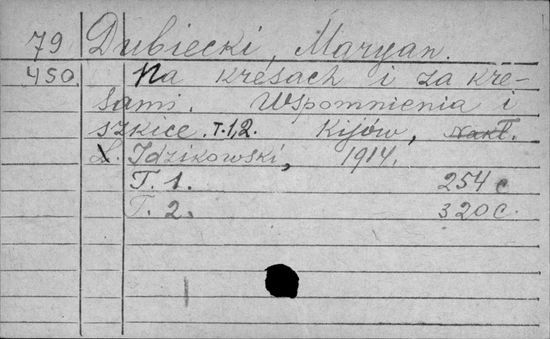 79 Dubiecki, Maryan.
450. Na kresach i za kre-
sami. Wspomnienia i
szkice. T.1,2. Kijów, Nakł.
L. Idzikowski, 1914.
T. 1. 254 c
T. 2. 320 c.